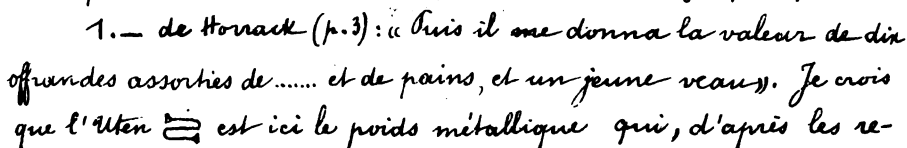 1. — de Horrack (p. 3) : « Puis il me donna la valeur de dix
offrandes assorties de ....... et de pains, et un jeune veau ». Je crois
que l'Uten est ici le poids métallique qui, d'après les re-